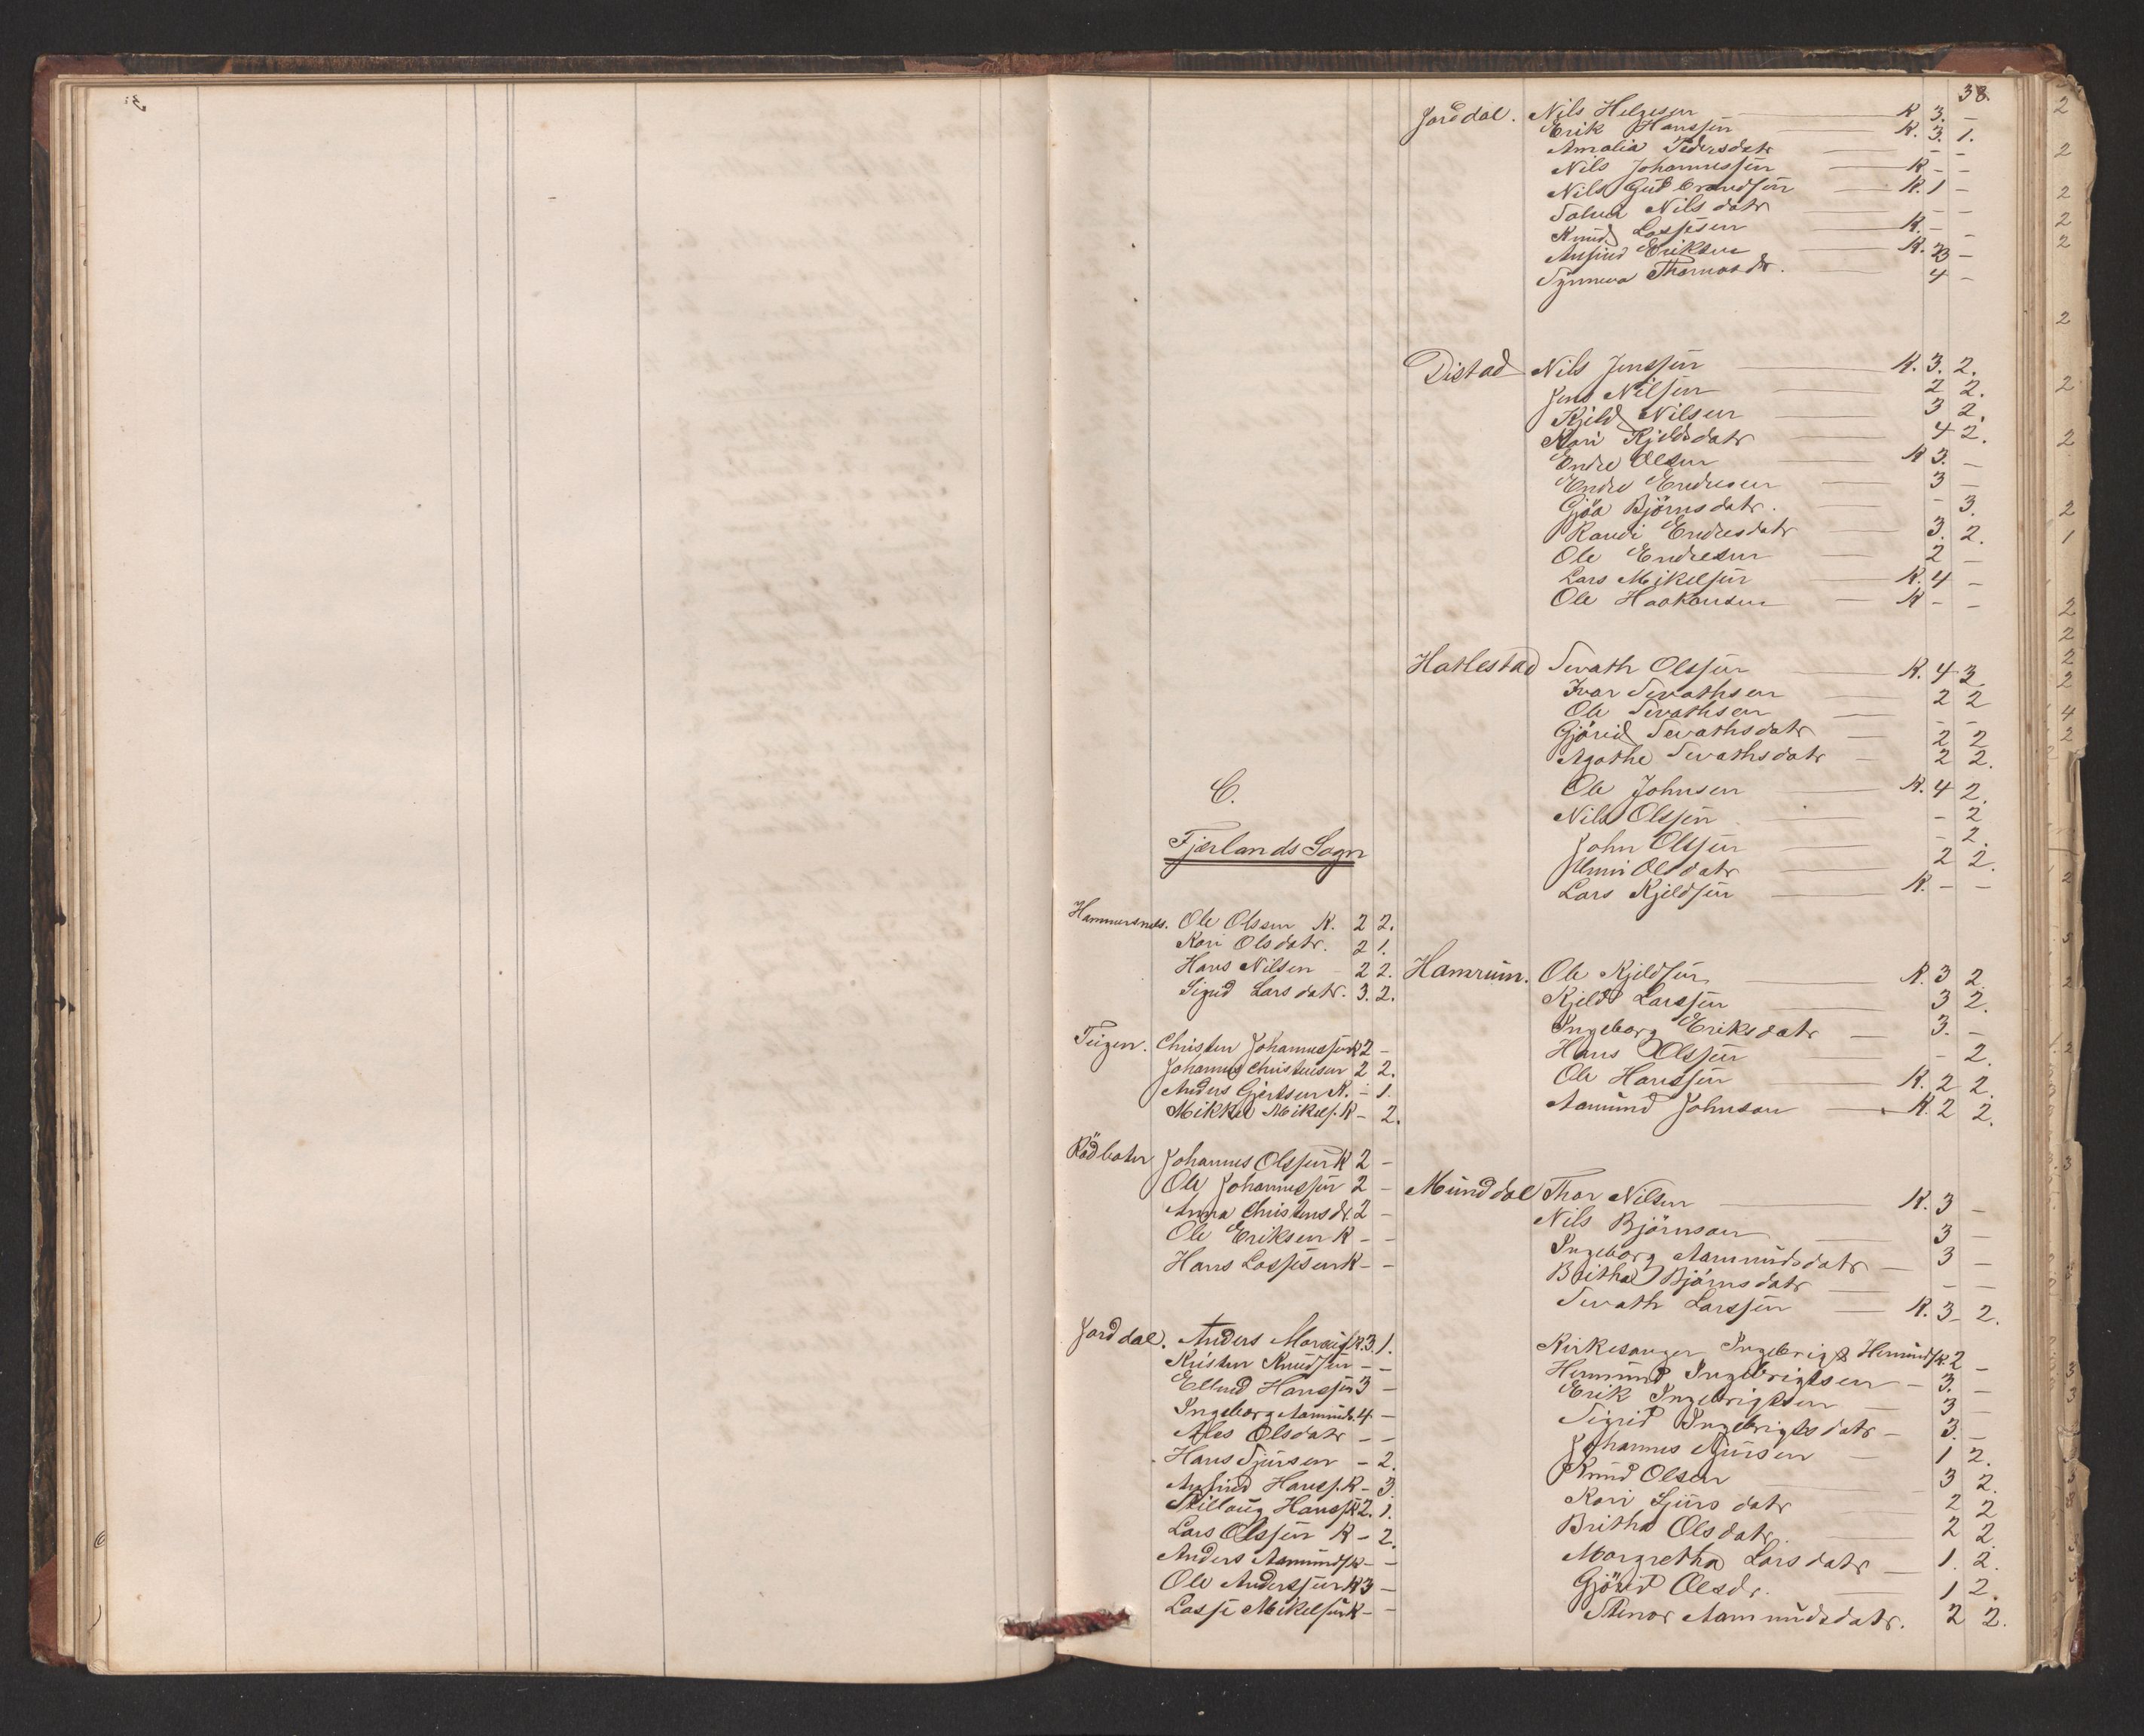 38.
C.
Fjærlands Sogn
Hammersnes. Ole Olsen K. 2 2.
Kari Olsdatr. 2 1.
Hans Nilsen - 2 2.
Sigrid Larsdatr. 3. 2.
Teigen. Christen Johannessen K 2 -
Johannes Christensen 2 2.
Anders Gjertsen K. - 1.
Mikkel Mikels. K - 2.
Rödbotn Johannes Olssen K 2 -
Ole Johannessen 2 -
Anna Christensdr. 2 -
Ole Eriksen K - -
Hans Lassesen K - -
Jorddal. Anders K. 3. 1.
Kristen Knudsen - -
Ellend Hanssen 3 -
Ingeborg Aamunds. 4. -
Ales Olsdatr - -
Hans Sjursen - 2.
Anfind Hans s. K - 3.
Stillaug Hanss K 2. 1.
Lars Olssen K - 2.
Anders Aamunds K - -
Ole Anderssen K 3 -
Lasse Mikelsen K - -
Jorddal. Nils Helgesen K 3. -
Erik Hanssen K. 3. 1.
Amalia Pedersdatr - -
Nils Johannessen K - -
Nils Gudbrandsen K. 1 -
Nilsdatr - -
Knud Lassesen K. - -
Anfind Eriksen K. 3 -
Synneva Thomasdr. 4 -
Distad Nils Jenssen K. 3. 2.
Jens Nilsen 2 2.
Kjeld Nilsen 3 2.
Kari Kjeldsdatr 4 2.
Endre Olsen K 3. -
Endre Endresen 3 -
Gjöa Björnsdatr. - 3.
Randi Endresdatr 3. 2.
Ole Endresen 2 -
Lars Mikelsen K. 4 -
Ole Haakonsen K - -
Hatlestad Sevath Olssen K. 4 3
Ivar Sevathsen 2 2
Ole Sevathsen - -
Gjörid Sevathsdatr 2 2
Agathe Sevathsdatr 2 2.
Ole Johnsen K. 4 2.
Nils Olssen - 2
John Olssen - 2.
Unni Olsdatr 2 2.
Lars Kjeldsen K. - -
Hamrum. Ole Kjeldsen K. 3 2.
Kjeld Larssen 3 2.
Ingeborg Eriksdatr 3. -
Hans Olssen - 2.
Ole Hanssen K. 2 2.
Aamund Johnsen K. 2 2.
Munddal Thor Nilsen K. 3 -
Nils Björnson 3 -
Ingeborg Aamundsdatr 3 -
Britha Björnsdatr - -
Sevath Larssen K. 3 2.
Kirkesanger Ingebrigt Hermunds K 2 -
Hermund Ingebrigtsen - 3. -
Erik Ingebrigtsen 3 -
Sigrid Ingebrigtsdatr - 3. -
Johannes Sjursen 1 2.
Knud Olsen 3 2.
Kari Sjursdatr 2 2
Britha Olsdatr. 2 2.
Margretha Larsdatr 1. 2.
Gjörid Olsdr. 1 2.
Aamundsdatr. 2 2.